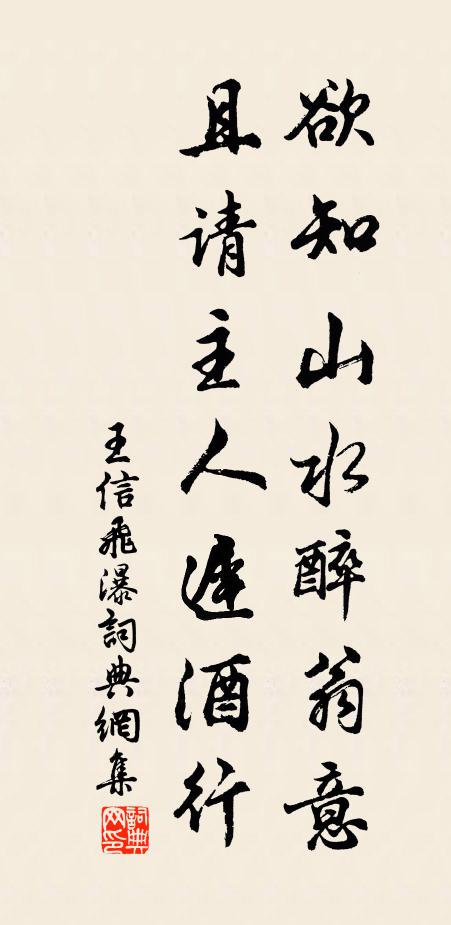 欲知山水醉翁意
且请主人遲酒行
王信飛瀑詞典網集
詞典网印